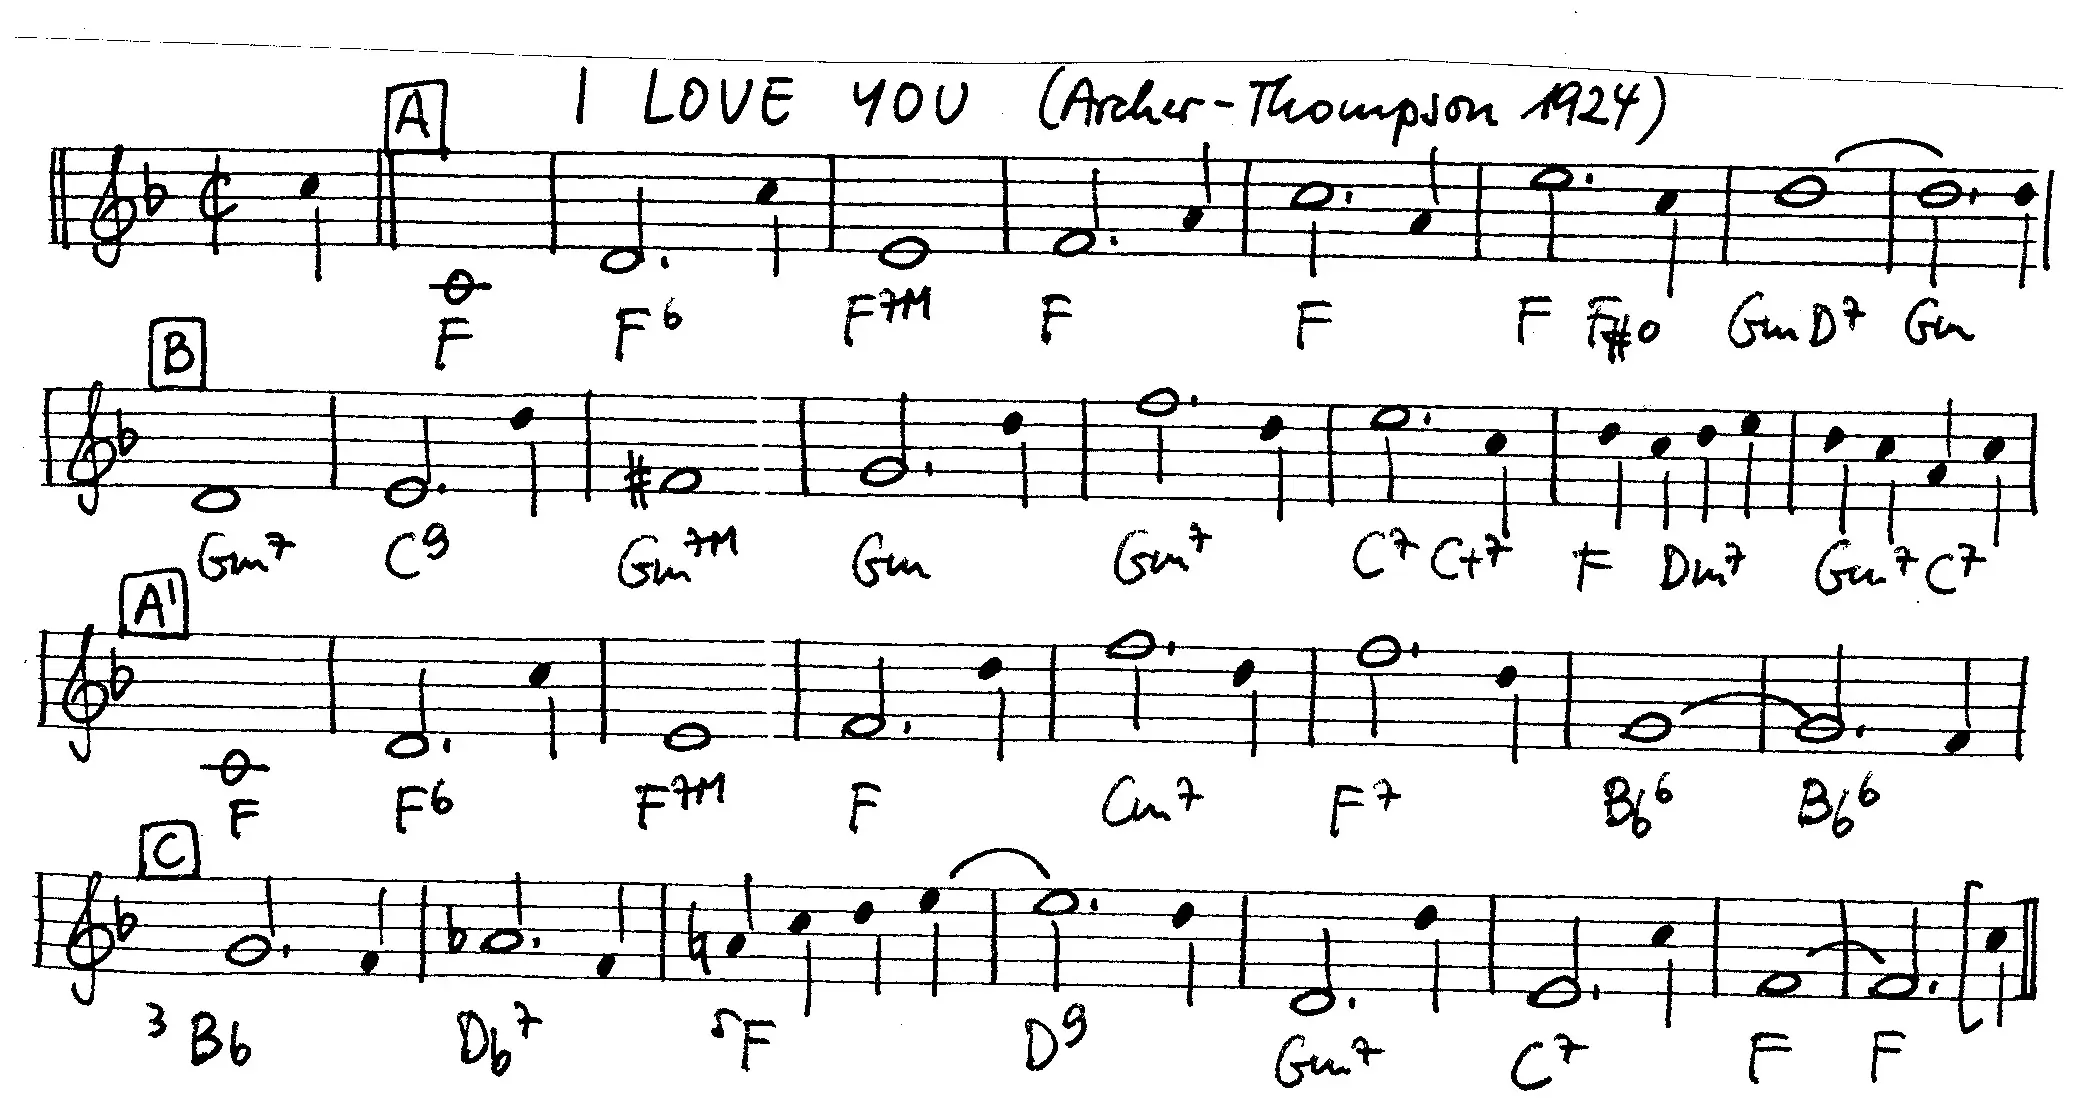 I LOVE YOU (Archer-Thompson 1924)
A
F F6 F7M F F F F#o Gm D7 Gm
B
Gm7 C9 Gm7M Gm Gm7 C7 C+7 F Dm7 Gm7 C7
A'
F F6 F7M F Cm7 F7 Bb6 Bb6
C
3 Bb Db7 5F D9 Gm7 C7 F F